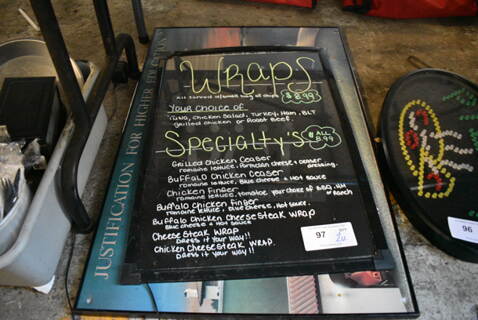 WRAPS
All served w/small bag of chips $8.99
Your choice of
Tuna, Chicken Salad, Turkey, Ham, BLT
grilled chicken or Roast Beef
Specialty's
*ALL* 8.99
Grilled Chicken Ceaser
romaine lettuce, Parmesan cheese & ceaser dressing.
Buffalo Chicken Ceaser
romaine lettuce, Blue cheese & Hot sauce
Chicken Finger
romaine lettuce, tomatoe, your choice of BBQ, HM or Ranch
Buffalo Chicken Finger
romaine lettuce, Blue cheese, Hot sauce.
Buffalo Chicken Cheesesteak Wrap
Blue cheese & Hot sauce
Cheese Steak Wrap
Dress it your way!!
Chicken Cheesesteak Wrap.
Dress it your way!!
97
96
JUSTIFICATION FOR HIGHER EDUCATION